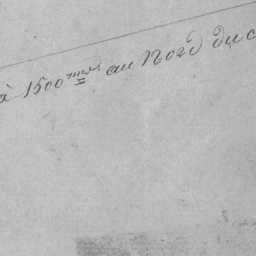 à 1500 mes au Nord du